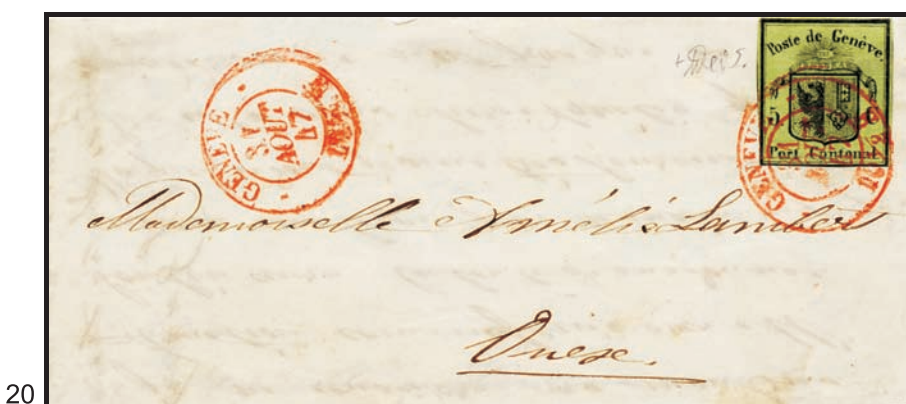 Poste de Genève
5 C
Port Cantonal
GENEVE
31
AOUT
47
Mademoiselle Amélie Lambert
Onex.
20